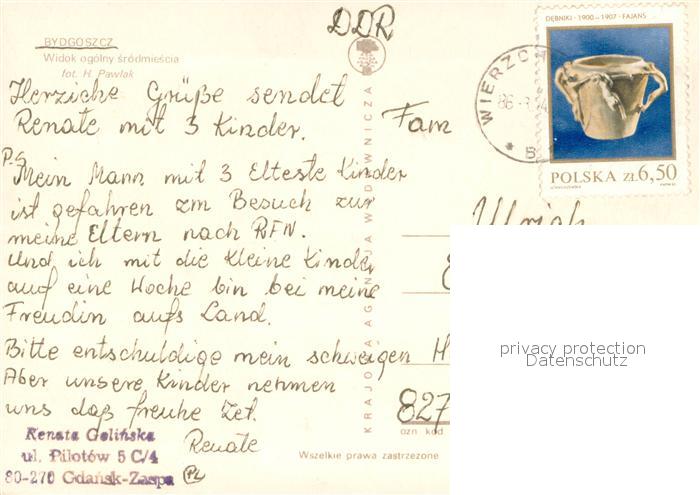 DDR
DĘBNIKI - 1900-1907 - FAJANS
POLSKA zł 6,50
WIERZCH
86
BYDGOSZCZ
Widok ogólny śródmieścia
fot. H. Pawlak
Herzliche Grüße sendet
Renate mit 3 Kinder.
P.S
Mein Mann mit 3 Elteste Kinder
ist gefahren zm Besuch zur
meine Eltern nach RFN.
Und ich mit die Kleine Kinder
auf eine Woche bin bei meine
Freudin aufs Land.
Bitte entschuldige mein schweigen
Aber unsere Kinder nehmen
uns daß freuhe Zet.
Renate
Renata Golińska
ul. Pilotów 5 C/4
80-270 Gdańsk-Zaspa
PL
KRAJOWA AGENCJA WYDAWNICZA
Fam
Ulrich
H
827
ozn kod
Wszelkie prawa zastrzeżone
privacy protection
Datenschutz